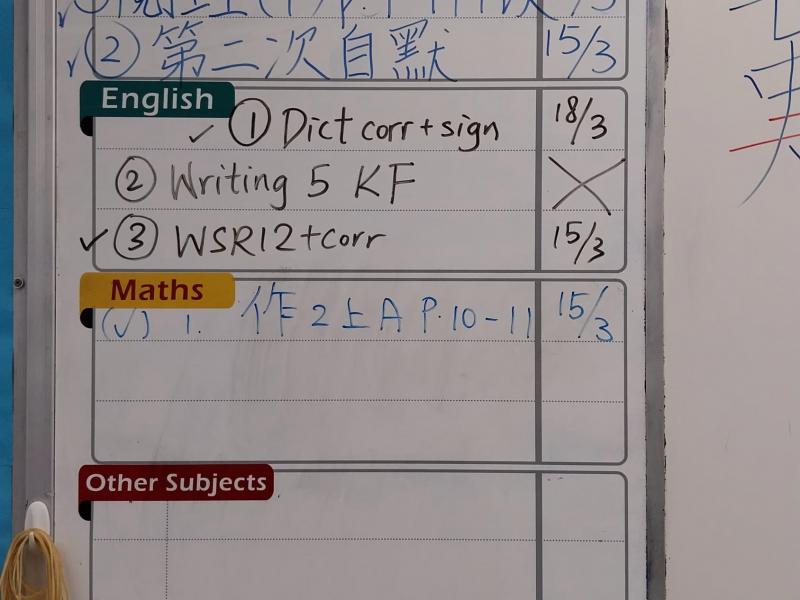 ✓ ② 第二次自默 15/3
English
✓ ① Dict corr + sign 18/3
② Writing 5 KF ×
✓ ③ WSR12+corr 15/3
Maths
(✓) 1. 作2上A P.10-11 15/3
Other Subjects